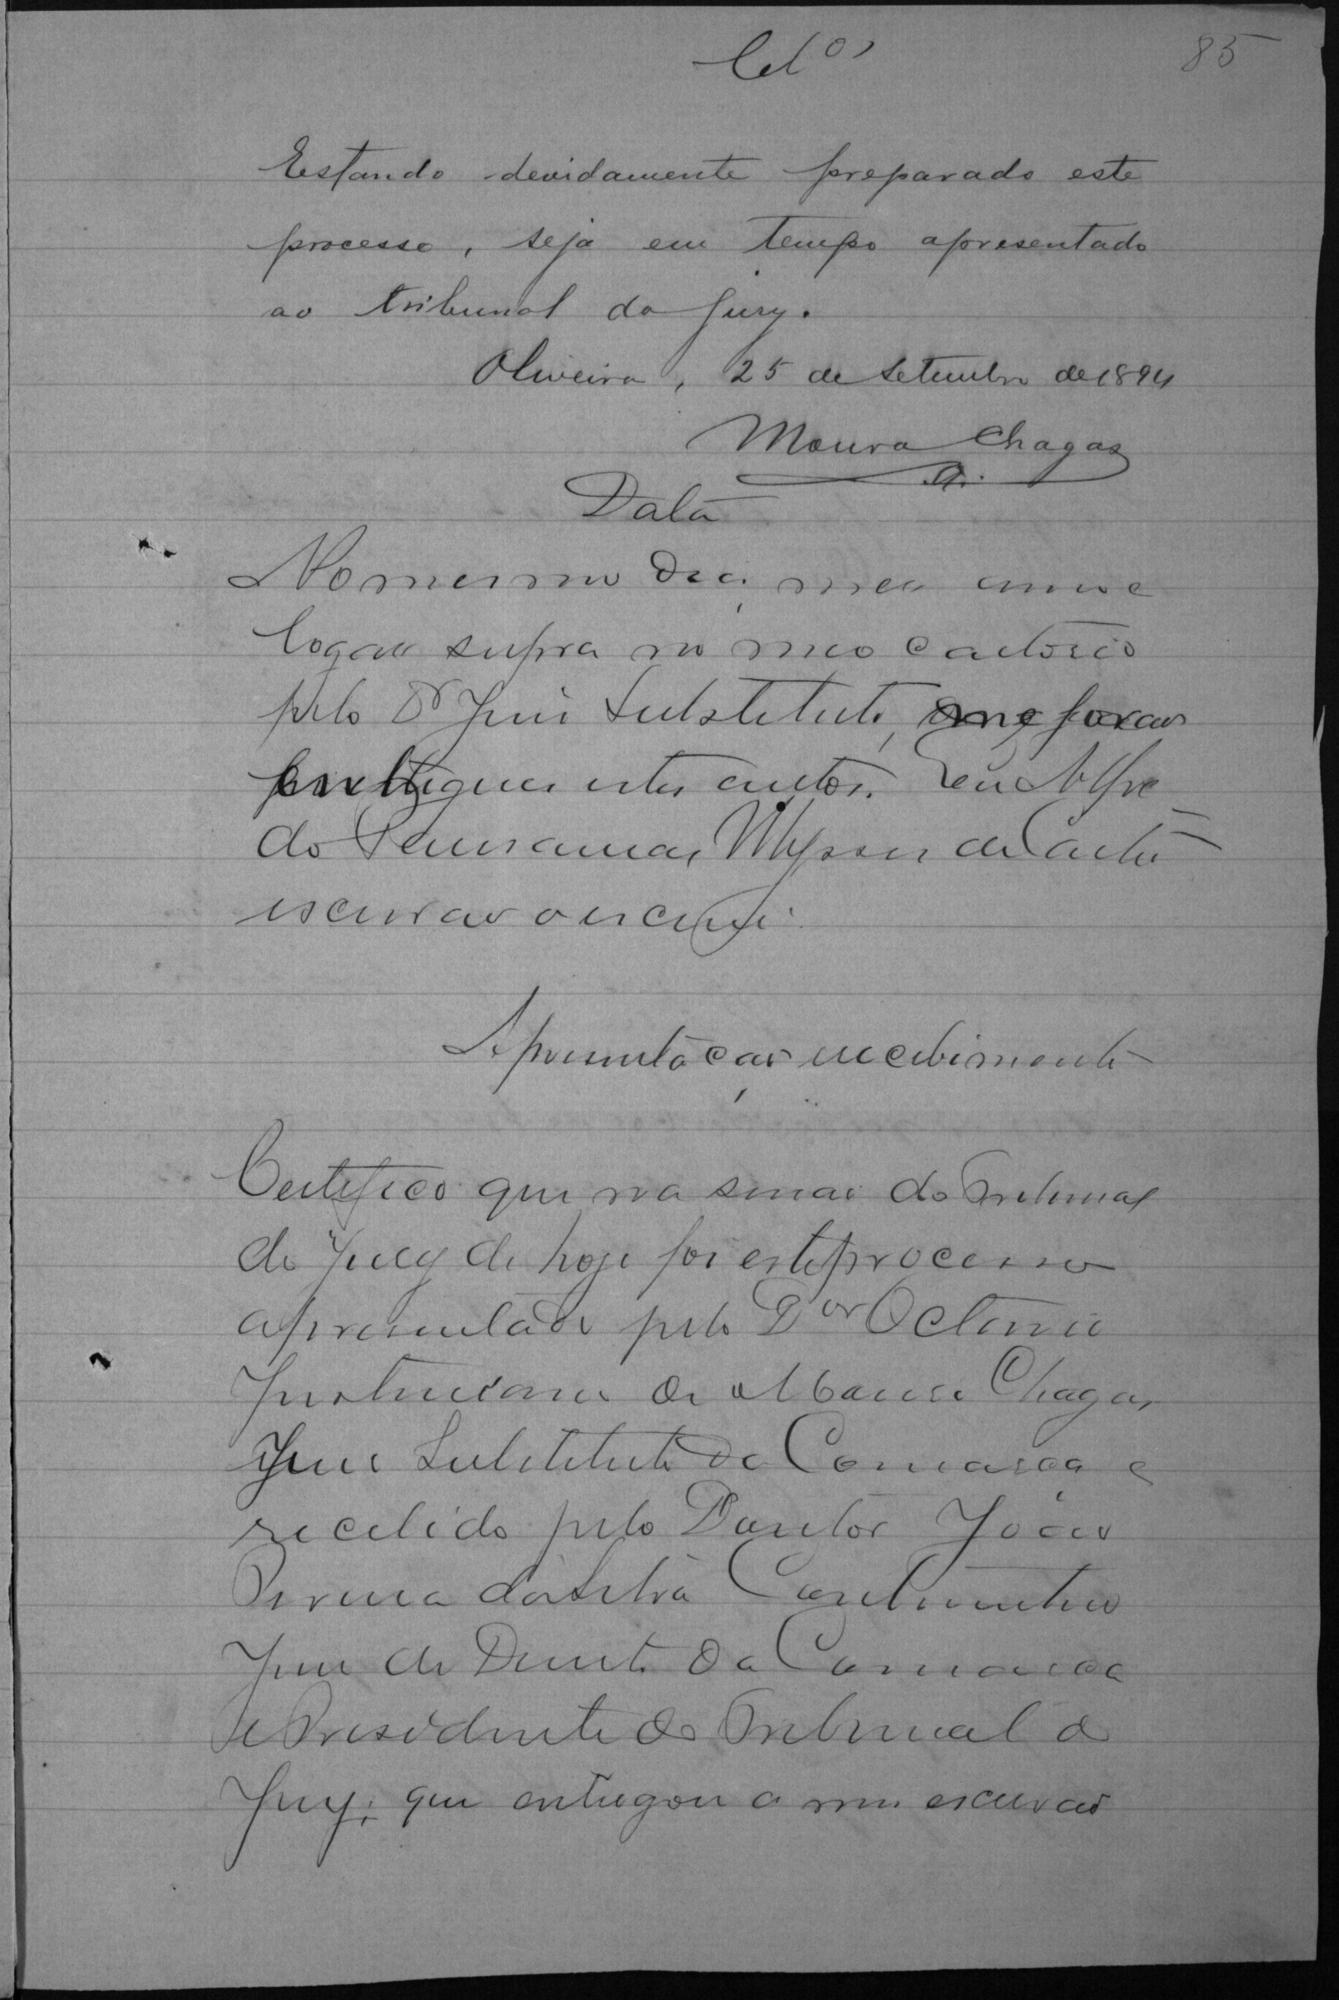 Cl.os
85
Estando devidamente preparado este
processo, seja em tempo apresentado
ao tribunal do jury.
Oliveira, 25 de Setembro de 1894
Moura Chagas
Data
No mesmo dia, mez anno e
logar supra no meo cartorio
pelo Dr Juiz Substituto, me forão
entregues estes autos. Eu Alfre
do
escrivão o escrevi.
Apresentação e recebimento
Certifico que na sessão do Tribunal
do Jury de hoje foi este processo
apresentado pelo Dor Octavio
de Moura Chagas,
Juiz Substituto da Comarca e
recebido pelo Doutor João
Pereira da Silva Continentino
Juiz de Direito da Comarca
e Presidente do Tribunal do
Jury, que entregou a mim escrivão